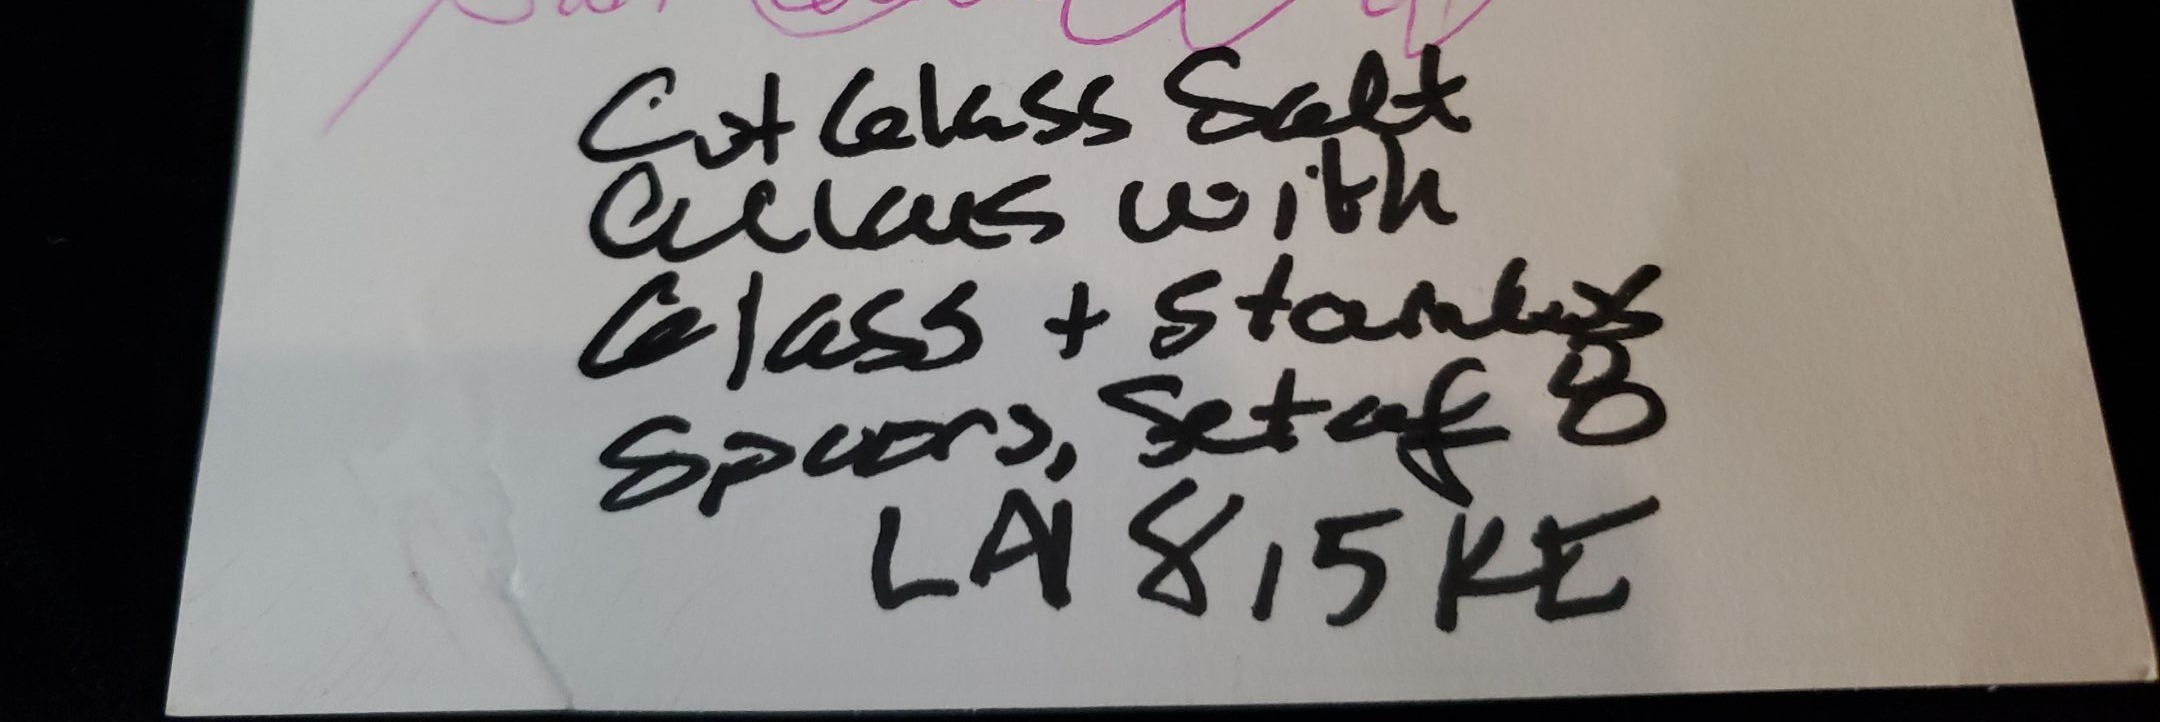 Cut Glass Salt
Cellars with
Glass + Stainless
Spoons, Set of 8
LAI 8,5 KE